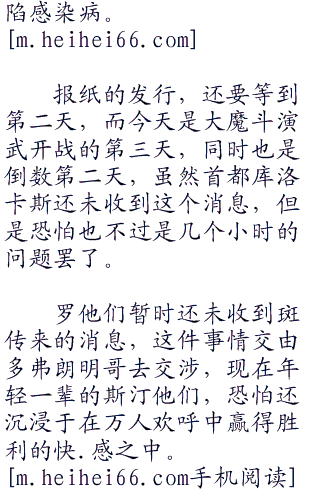 陷感染病。
[m.heihei66.com]
报纸的发行，还要等到
第二天，而今天是大魔斗演
武开战的第三天，同时也是
倒数第二天，虽然首都库洛
卡斯还未收到这个消息，但
是恐怕也不过是几个小时的
问题罢了。
罗他们暂时还未收到斑
传来的消息，这件事情交由
多弗朗明哥去交涉，现在年
轻一辈的斯汀他们，恐怕还
沉浸于在万人欢呼中赢得胜
利的快.感之中。
[m.heihei66.com手机阅读]